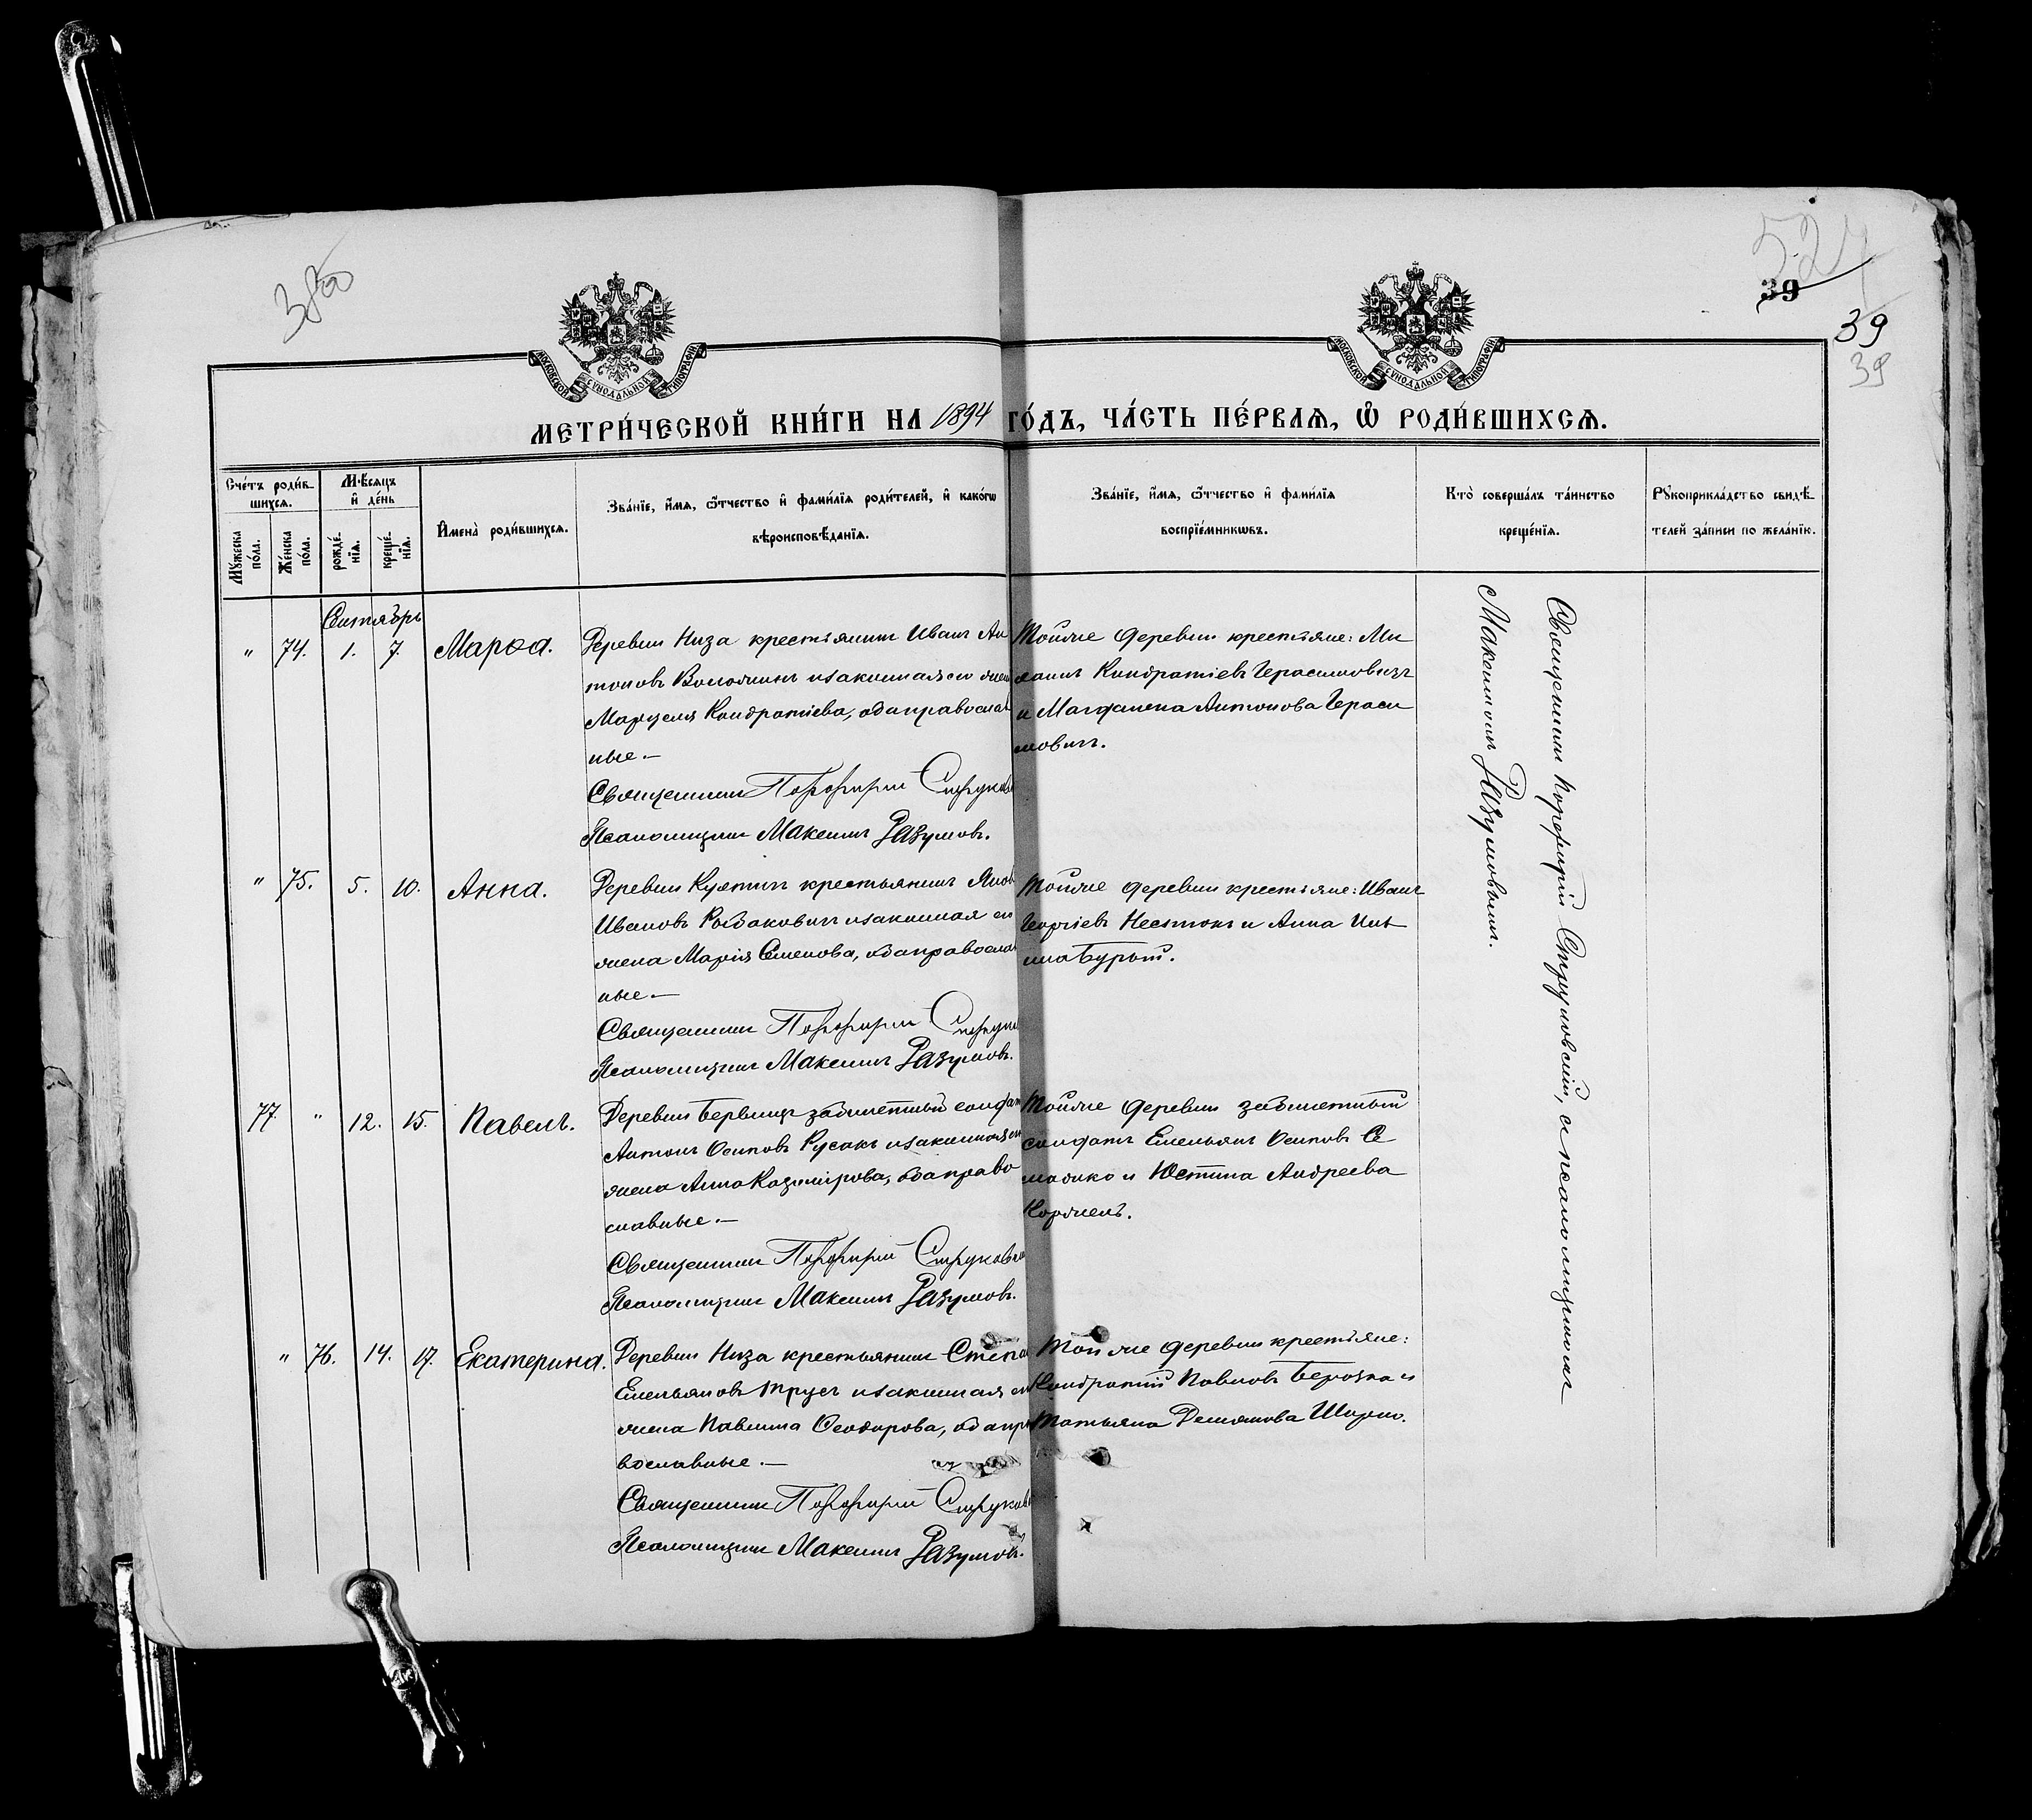 38об
39
39
39
МЕТРИ́ЧЕСКОЙ КНИ́ГИ НА 1894 ГО́ДЪ, ЧА́СТЬ ПЕ́РВАѦ, Ѽ РОДИ́ВШИХСѦ.
Сче́тъ роди́в-
шихсѧ.
Мꙋ́жеска по́ла.
Же́нска по́ла.
Мѣ́сѧцъ
и҆ де́нь
рожде́-нїѧ.
креще́-нїѧ.
И҆мена̀ роди́вшихсѧ.
Зва́нїе, и҆́мѧ, ѻ҆́тчество и҆ фами́лїѧ роди́телей, и҆ како́гѡ
вѣроисповѣ́данїѧ.
Зва́нїе, и҆́мѧ, ѻ҆́тчество и҆ фами́лїѧ
воспрїе́мникѡвъ.
Кто̀ соверша́лъ та́инство
креще́нїѧ.
Рꙋкоприкла́дство свидѣ́-
телей за́писи по жела́нїю.
Сентябрь
" 74. 1. 7. Марѳа.
Деревни Низа крестьянинъ Иванъ Ан
тоновъ и законная его жена
Марцеля Кондратіева, оба православ
ные.—
Священникъ Порфирій Струковс
Псаломщикъ Максимъ Разумовъ.
Тойже деревни крестьяне: Ми
хаилъ Кондратіевъ Герасимовичъ
и Магдалена Антонова Гераси
мовичъ.
Священникъ Порфирій Струковскій, съ псаломщикомъ
Максимомъ Разумовымъ.
" 75. 5. 10. Анна.
Деревни крестьянинъ Яковъ
Ивановъ Рыбаковичъ и законная его
жена Марія Семенова, оба православ
ные.—
Священникъ Порфирій Струко
Псаломщикъ Максимъ Разумовъ.
Тойже деревни крестьяне: Иванъ
Георгіевъ Нестюкъ и Анна
77. " 12. 15. Павелъ.
Деревни забилетный солдатъ
Антонъ Осиповъ Русакъ и законная его
жена Анна Казимірова, оба право
славные.—
Священникъ Порфирій Струковск
Псаломщикъ Максимъ Разумовъ.
Тойже деревни забилетный
солдатъ Емельянъ Осиповъ Се
и Юстина Андреева
" 76. 14. 17. Екатерина.
Деревни Низа крестьянинъ Степа
Емельяновъ Трусъ и законная его
жена Павлина Ѳеодорова, оба пра
вославные.—
Священникъ Порфирій Струковс
Псаломщикъ Максимъ Разумовъ.
Тойже деревни крестьяне:
Кондратій Павловъ Березка и
Татьяна Демянова